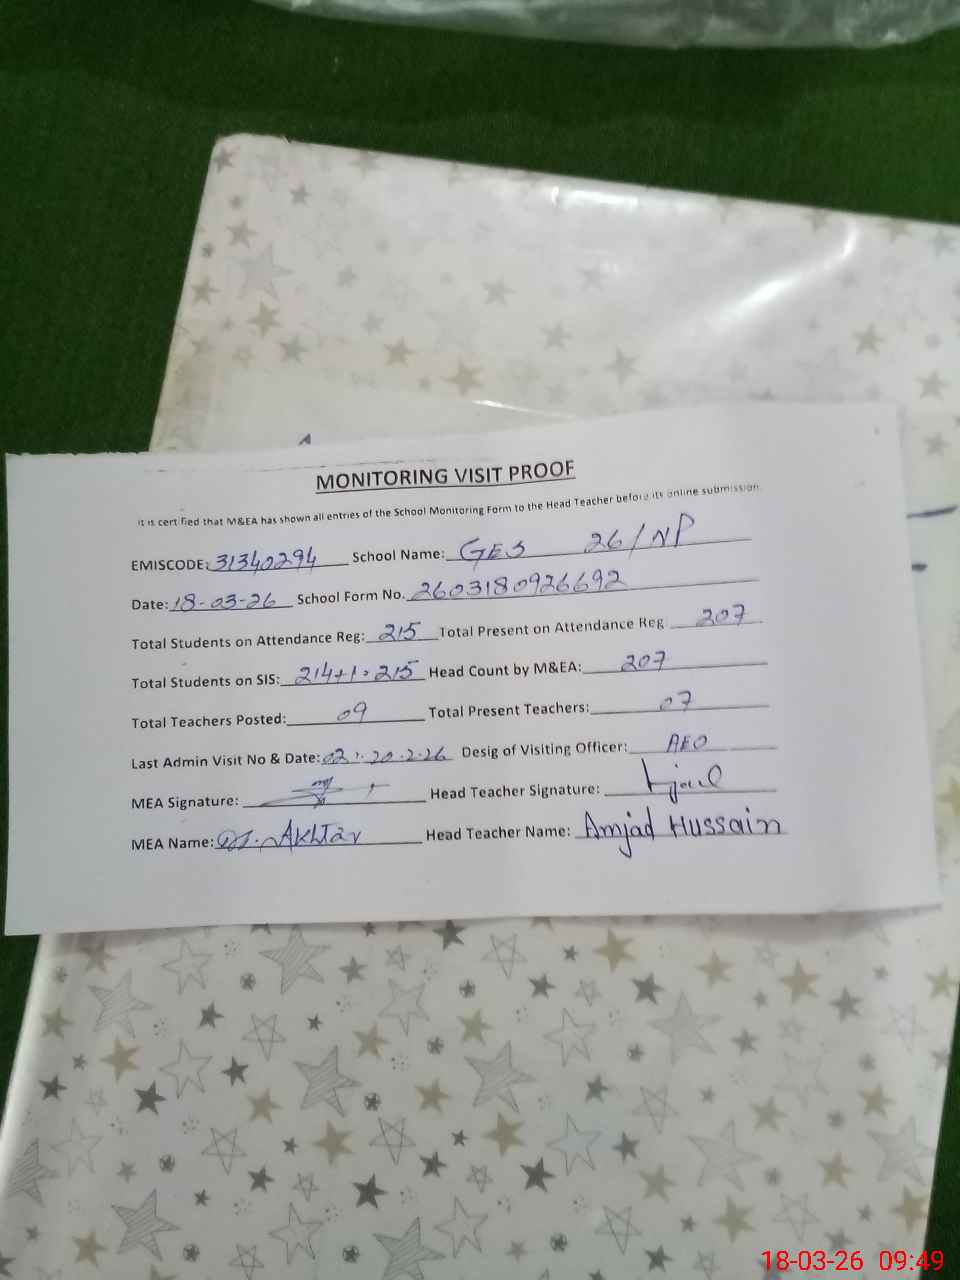 MONITORING VISIT PROOF
It is certified that M&EA has shown all entries of the School Monitoring Form to the Head Teacher before its online submission.
EMISCODE: 31340294 School Name: GES 26/NP
Date: 18-03-26 School Form No. 2603180926692
Total Students on Attendance Reg: 215 Total Present on Attendance Reg 207
Total Students on SIS: 214+1=215 Head Count by M&EA: 207
Total Teachers Posted: 09 Total Present Teachers: 07
Last Admin Visit No & Date: 02: 20-2-26 Desig of Visiting Officer: AEO
MEA Signature: Head Teacher Signature:
MEA Name: Akhtar Head Teacher Name: Amjad Hussain
18-03-26 09:49